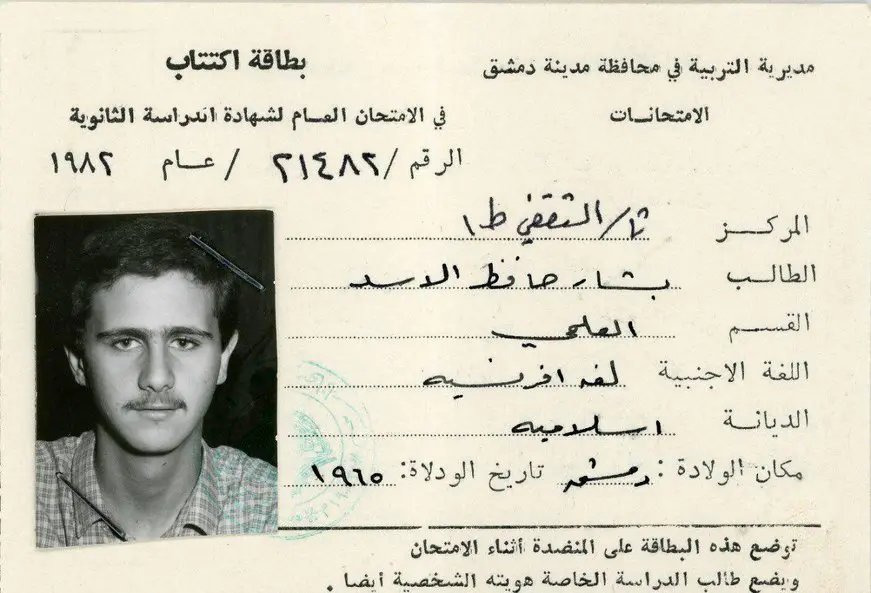 مديرية التربية في محافظة مدينة دمشق
الامتحانات
بطاقة اكتتاب
في الامتحان العام لشهادة الدراسة الثانوية
الرقم / ٢١٤٨٢ / عام ١٩٨٢
المركز ثا/الثقفي ط١
الطالب بشار حافظ الاسد
القسم العلمي
اللغة الاجنبية لغه افرنسيه
الديانة اسلاميه
مكان الولادة : دمشق تاريخ الودلاة: ١٩٦٥
توضع هذه البطاقة على المنضدة أثناء الامتحان
ويضع طالب الدراسة الخاصة هويته الشخصية أيضا .